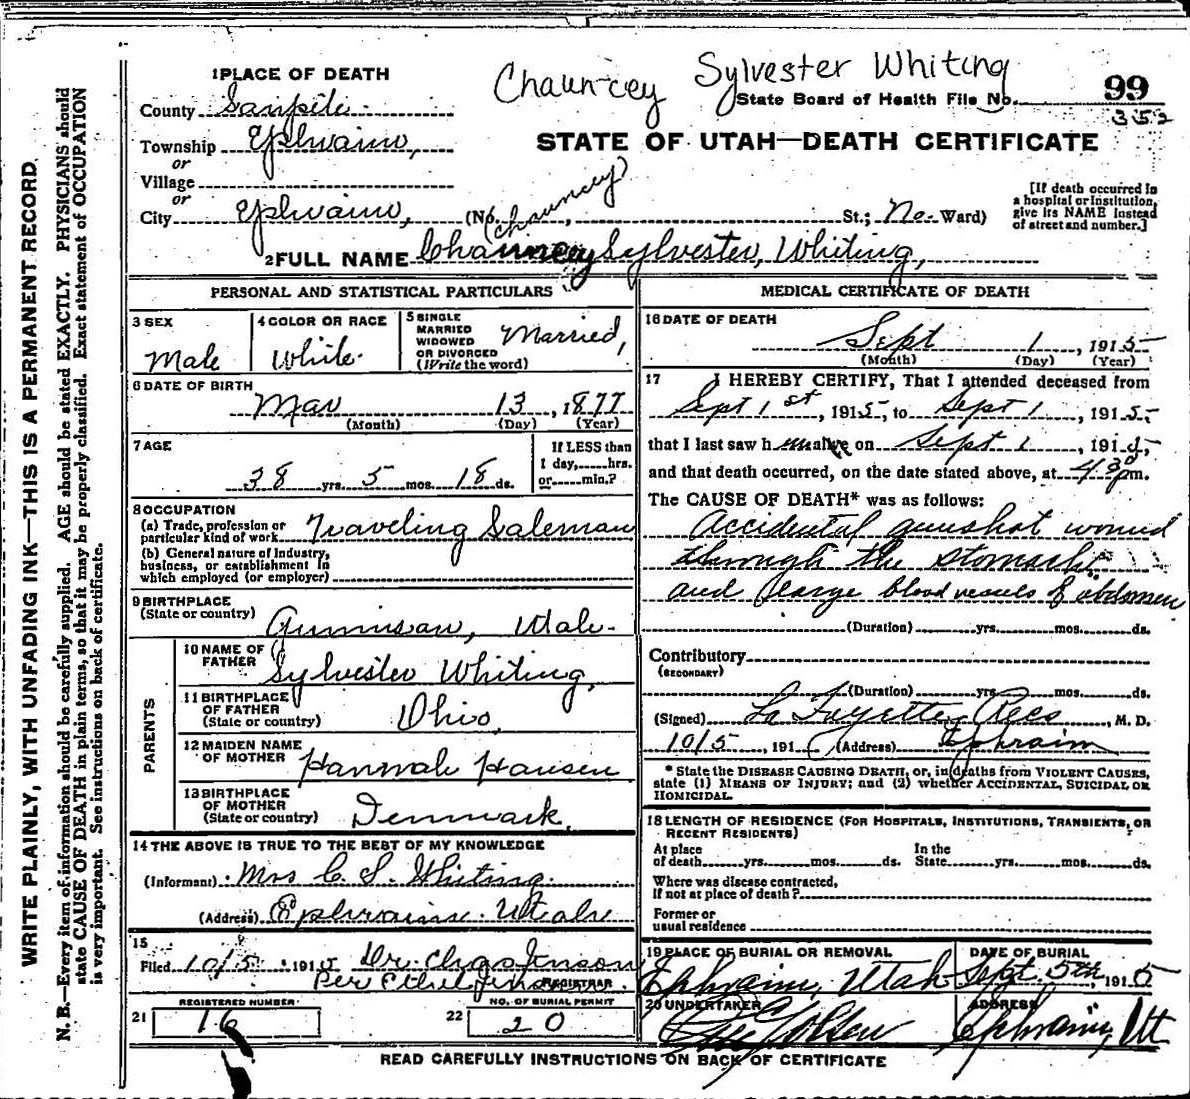 Chauncey Sylvester Whiting
State Board of Health File No. 99
352
STATE OF UTAH—DEATH CERTIFICATE
1 PLACE OF DEATH
County Sanpete
Township Ephraim,
or
Village
or
City Ephraim, (No. St.; No. Ward)
(Chauncey)
[If death occurred in a hospital or institution, give its NAME instead of street and number.]
2 FULL NAME Chauncey Sylvester Whiting,
PERSONAL AND STATISTICAL PARTICULARS
3 SEX
Male
4 COLOR OR RACE
White
5 SINGLE
MARRIED
WIDOWED
OR DIVORCED
(Write the word)
Married,
6 DATE OF BIRTH
Mar 13, 1877
(Month) (Day) (Year)
7 AGE
38 yrs. 5 mos. 18 ds.
If LESS than
1 day, hrs.
or min.?
8 OCCUPATION
(a) Trade, profession or
particular kind of work Traveling Saleman
(b) General nature of industry,
business, or establishment in
which employed (or employer)
9 BIRTHPLACE
(State or country)
Gunnison, Utah.
PARENTS
10 NAME OF
FATHER
Sylvester Whiting,
11 BIRTHPLACE
OF FATHER
(State or country)
Ohio,
12 MAIDEN NAME
OF MOTHER
Hannah Hansen
13 BIRTHPLACE
OF MOTHER
(State or country)
Denmark,
14 THE ABOVE IS TRUE TO THE BEST OF MY KNOWLEDGE
(Informant) Mrs C. S. Whiting.
(Address) Ephraim. Utah
15
Filed 10/5 1915 Dr. Chas Jenson
Per Ethel Jenson REGISTRAR
REGISTERED NUMBER
21 16
NO. OF BURIAL PERMIT
22 20
MEDICAL CERTIFICATE OF DEATH
16 DATE OF DEATH
Sept 1, 1915
(Month) (Day) (Year)
17 I HEREBY CERTIFY, That I attended deceased from
Sept 1st, 1915, to Sept 1, 1915
that I last saw h alive on Sept 1, 1915,
and that death occurred, on the date stated above, at 4 30 p m.
The CAUSE OF DEATH* was as follows:
Accidental gunshot wound
through the stomach
and large blood vessels of abdomen
(Duration) yrs. mos. ds.
Contributory
(SECONDARY)
(Duration) yrs. mos. ds.
(Signed) La Fayette Rees, M. D.
10/5, 191 (Address) Ephraim
* State the DISEASE CAUSING DEATH, or, in deaths from VIOLENT CAUSES,
state (1) MEANS OF INJURY; and (2) whether ACCIDENTAL, SUICIDAL OR
HOMICIDAL.
18 LENGTH OF RESIDENCE (FOR HOSPITALS, INSTITUTIONS, TRANSIENTS, OR
RECENT RESIDENTS)
At place In the
of death yrs. mos. ds. State yrs. mos. ds.
Where was disease contracted,
if not at place of death?
Former or
usual residence
19 PLACE OF BURIAL OR REMOVAL
Ephraim, Utah
DATE OF BURIAL
Sept. 5th, 1915
20 UNDERTAKER
Olsen
ADDRESS
Ephraim, Ut
READ CAREFULLY INSTRUCTIONS ON BACK OF CERTIFICATE
WRITE PLAINLY, WITH UNFADING INK—THIS IS A PERMANENT RECORD.
N. B.—Every item of information should be carefully supplied. AGE should be stated EXACTLY. PHYSICIANS should
state CAUSE OF DEATH in plain terms, so that it may be properly classified. Exact statement of OCCUPATION
is very important. See instructions on back of certificate.